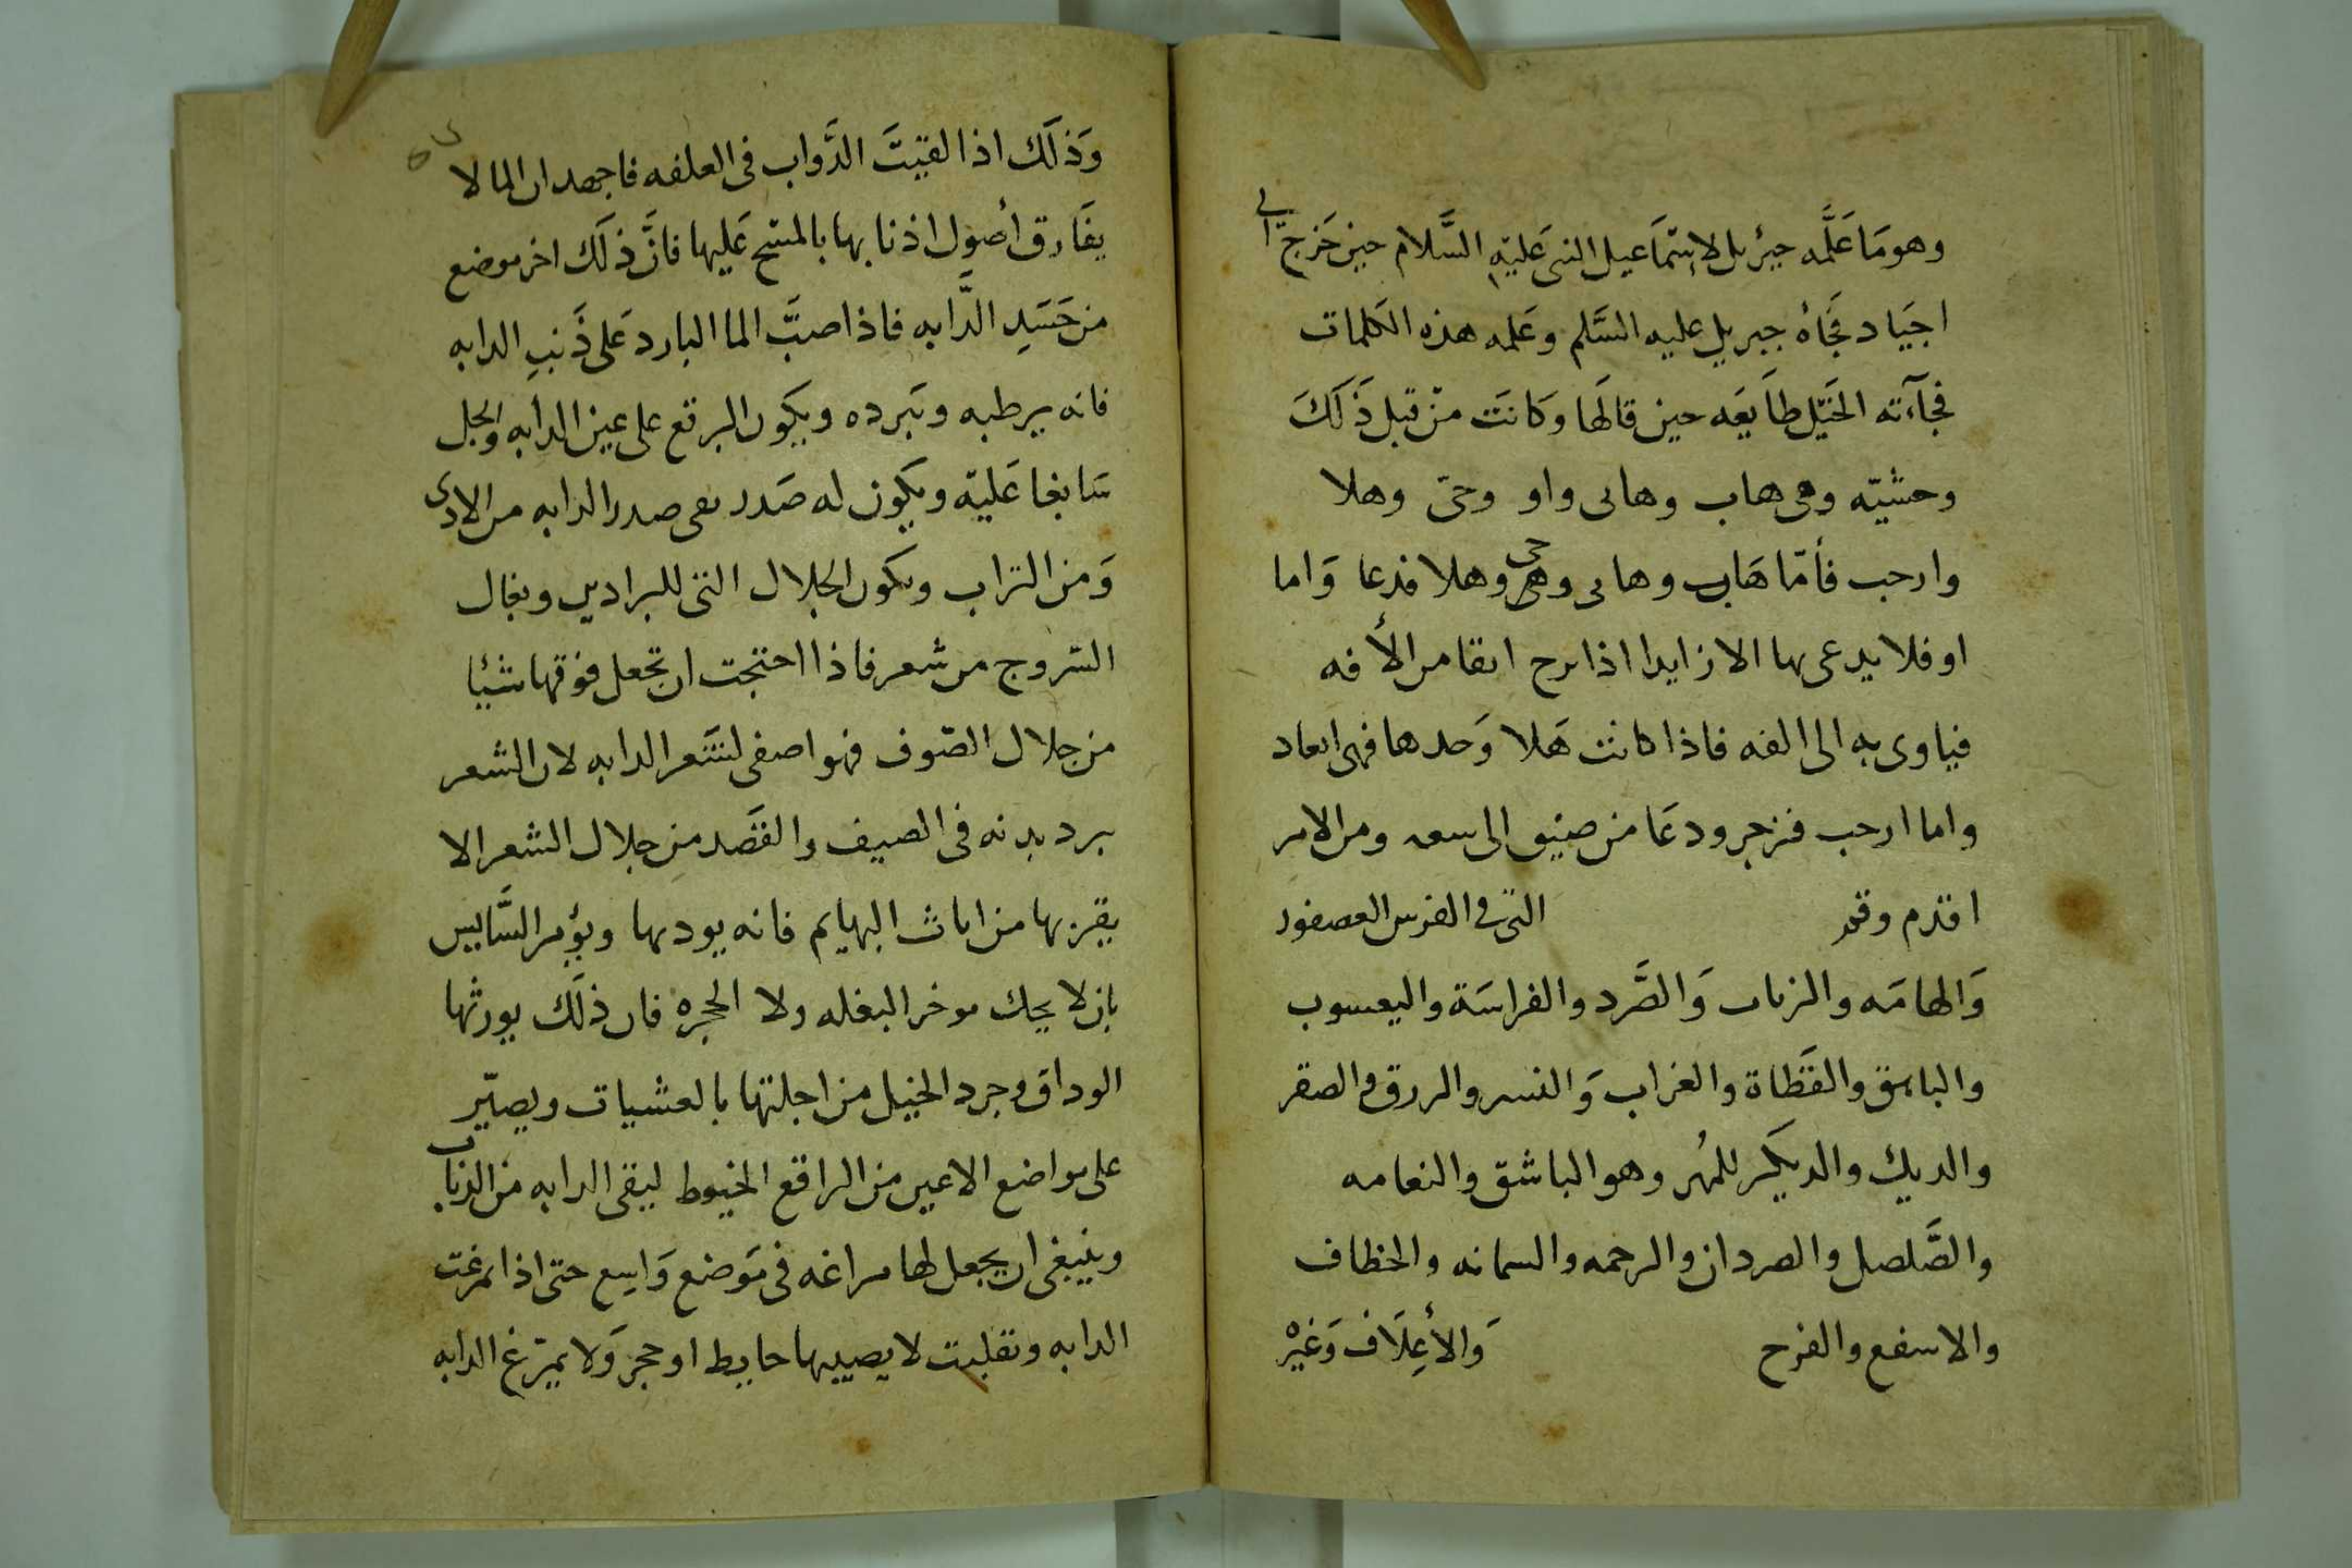 وهو مَا عَلَّمه جبرئيل لاسمَاعيل النبى عَليه السَّلام حين خَرج الى
اجيَاد فجَأه جبريل عليه السَّلم وعَلمه هذه الكلمات
فجآءته الخَيل طَايعَه حين قالهَا وكَانَت من قبل ذَلكَ
وحشيّه وهى هاب وهابى واو وحىّ وهلا
وارحب فأمّا هَاب وهابى وهى حى وهلا فدعا وَاما
او فلا يدعى بها الا زايدا اذا برح انقا من الأفه
فياوى به الى الفه فاذا كانت هَلا وَحدها فهى ابعاد
واما ارحب فزجر ودعَا من ضيق الى سعه ومن الامر
اقدم وقد التى فى الفرس العصفور
وَالهامَه والذباب وَالصَّرد والفراسَة واليعسوب
والباسق والقَطاة والغراب وَالنسر والزرق والصقر
والديك والديكبر للمهُر وهو الباشق والنعامه
والصَّلصل والصردان والرحمه والسمانه والخطاف
والاسفع والفرح وَالأعِلَاف وَغيْر
وَذلَك اذا لقيتَ الدَّواب فى العلفه فاجهد ان الما لا
يفَارق أصول اذنابها بالمسَح عَليها فانَّ ذلَك اخر موضع
من جَسَدِ الدَّابه فاذا صبَّ الما البارد عَلى ذَنبِ الدابه
فانه يرطبه ويَبرده ويكون البرقع على عين الدابه والجل
سَابغا عَليه ويكون له صَدر يقى صدر الدابه من الاذى
وَمن التراب ويكون الجلال التى للبرادين وبغال
السروج من شعر فاذا احتجت ان تجعل فوقها شيئا
من جلال الصّوف فهو اصفى لشَعر الدابه لان الشعر
يبرد بدنه فى الصيف والقصَد من جلال الشعر الا
يقربها من اناث البهايم فانه يوديها ويؤمر السَّايس
بان لا يحك موخر البغله ولا الحجره فان ذلَك يورثها
الوداق وجرد الخيل من اجلتها بالعشيات ويصيّر
على مواضع الاعين من البراقع الخيوط ليقى الدابه من الذباب
وينبغى ان يجعل لها مراغه فى مَوضع وَاسِع حتى اذا تمرغت
الدابه وتقلبت لا يصيبها حايط او حجر وَلا يمرّغ الدابه